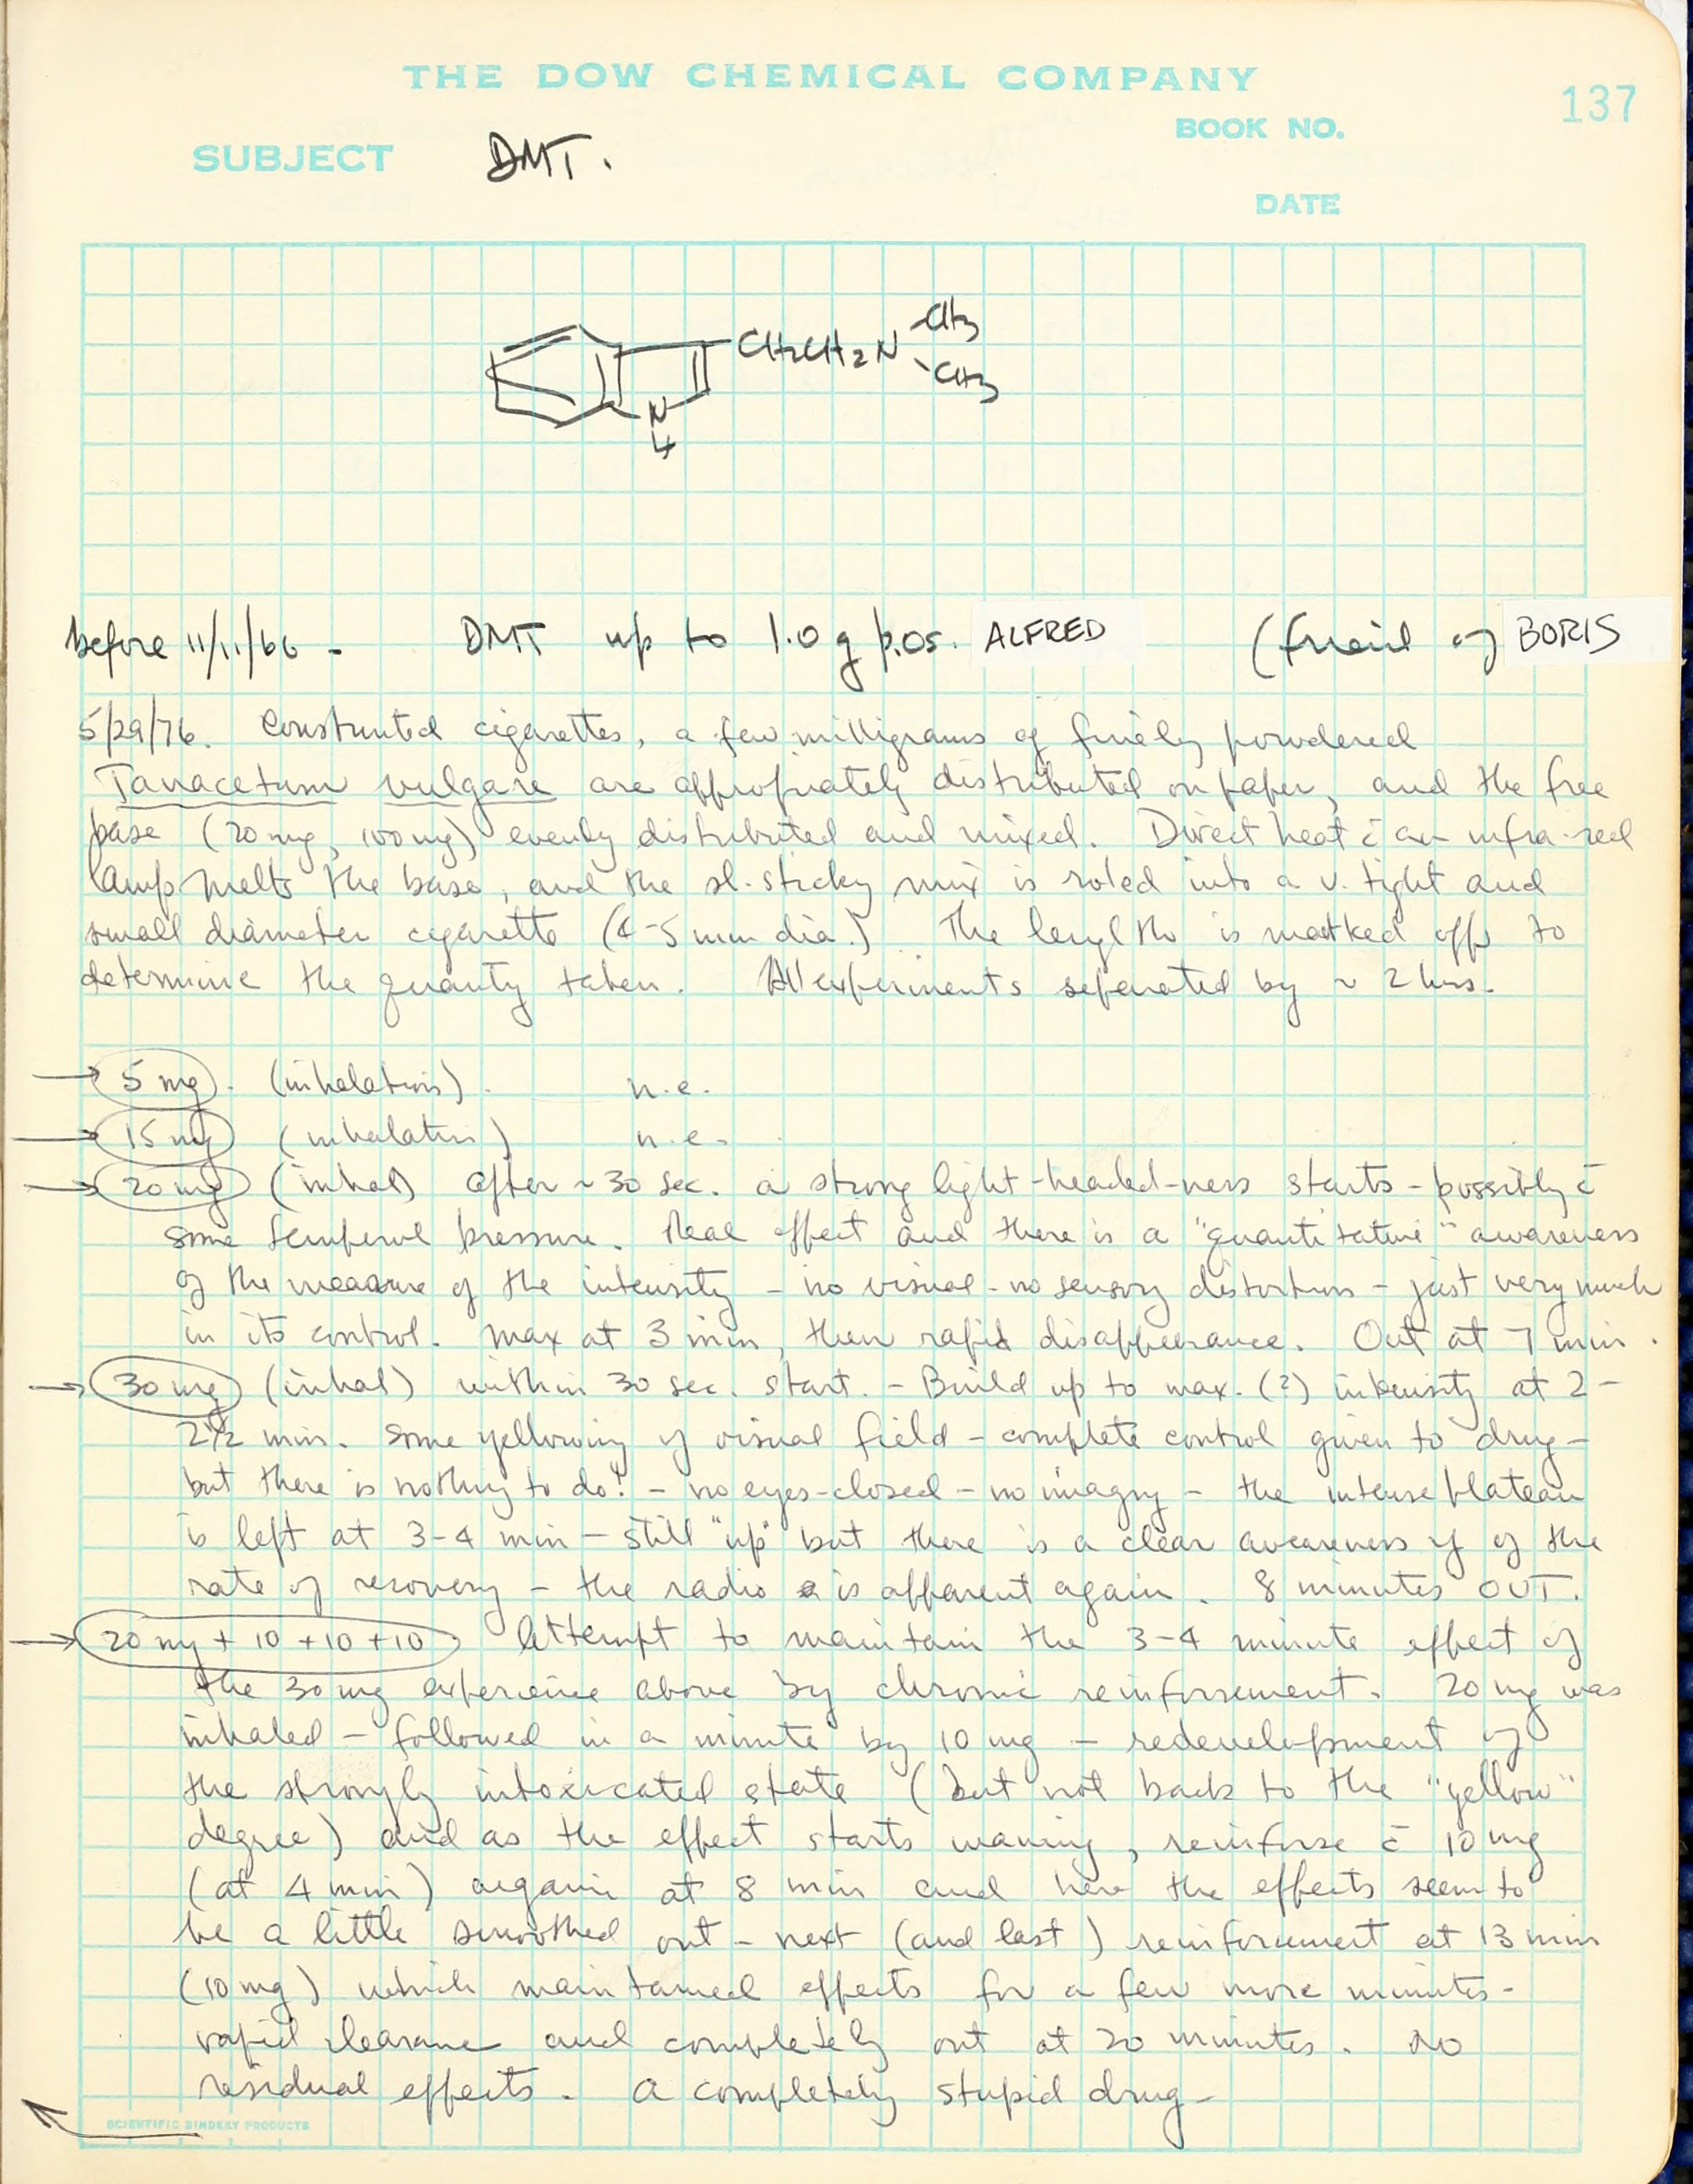 THE DOW CHEMICAL COMPANY
137
BOOK NO.
SUBJECT DMT.
DATE
CH2CH2N CH3
CH3
N
H
before 11/11/66 - DMT up to 1.0 g p.os. ALFRED (freind of BORIS
5/29/76. Constructed cigarettes, a few milligrams of finely powdered
Tanacetum vulgare are appropriately distributed on paper, and the free
base (20 mg, 100 mg) evenly distributed and mixed. Direct heat c̄ an infra-red
lamp melts the base, and the sl. sticky mix is roled into a v. tight and
small diameter cigarette (4-5 mm dia.) The length is marked off to
determine the quanity taken. All experiments seperated by ~ 2 hrs.
→ 5 mg. (inhalation). n.e.
→ 15 mg (inhalation) n.e.
→ 20 mg (inhal) after ~ 30 sec. a strong light-headed-ness starts - possibly c̄
some temporal pressure. Real effect and there is a "quantitative" awareness
of the measure of the intensity - no visual - no sensory distortion - just very much
in its control. Max at 3 min, then rapid disappearance. Out at 7 min.
→ 30 mg (inhal) within 30 sec. start. - Build up to max. (?) intensity at 2-
2½ min. Some yellowing of visual field - complete control given to drug -
but there is nothing to do! - no eyes-closed - no imagry - the intense plateau
is left at 3-4 min - still "up" but there is a clear awareness of of the
rate of recovery - the radio is apparent again. 8 minutes OUT.
→ 20 mg + 10 + 10 + 10 Attempt to maintain the 3-4 minute effect of
the 30 mg experience above by chronic reinforsement. 20 mg was
inhaled - followed in a minute by 10 mg - redevelopment of
the strongly intoxicated state (but not back to the "yellow"
degree) and as the effect starts waning, reinforse c̄ 10 mg
(at 4 min) again at 8 min and here the effects seem to
be a little smoothed out - next (and last) reinforcement at 13 min
(10 mg) which maintained effects for a few more minutes -
rapid clearance and completely out at 20 minutes. No
residual effects. A completely stupid drug -
SCIENTIFIC BINDERY PRODUCTS